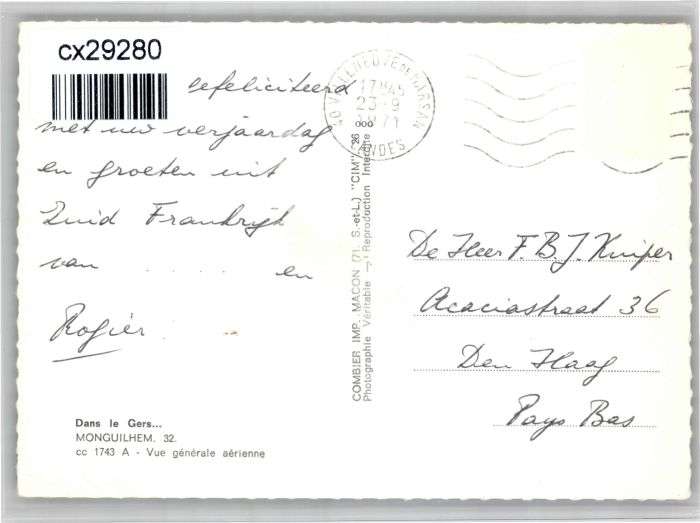 cx29280
Gefeliciteerd
met uw verjaardag
en groeten uit
Zuid Frankrijk
van . . . . . en
Rogier
Dans le Gers...
MONGUILHEM. 32.
cc 1743 A - Vue générale aérienne
40 VILLENEUVE DE MARSAN
17H45
23-9
1971
LANDES
COMBIER IMP. MACON (71. S.-et-L.) "CIM" 26 000
Photographie Véritable - Reproduction Interdite
De Heer F.B.J. Kuiper
Acaciastraat 36
Den Haag
Pays Bas